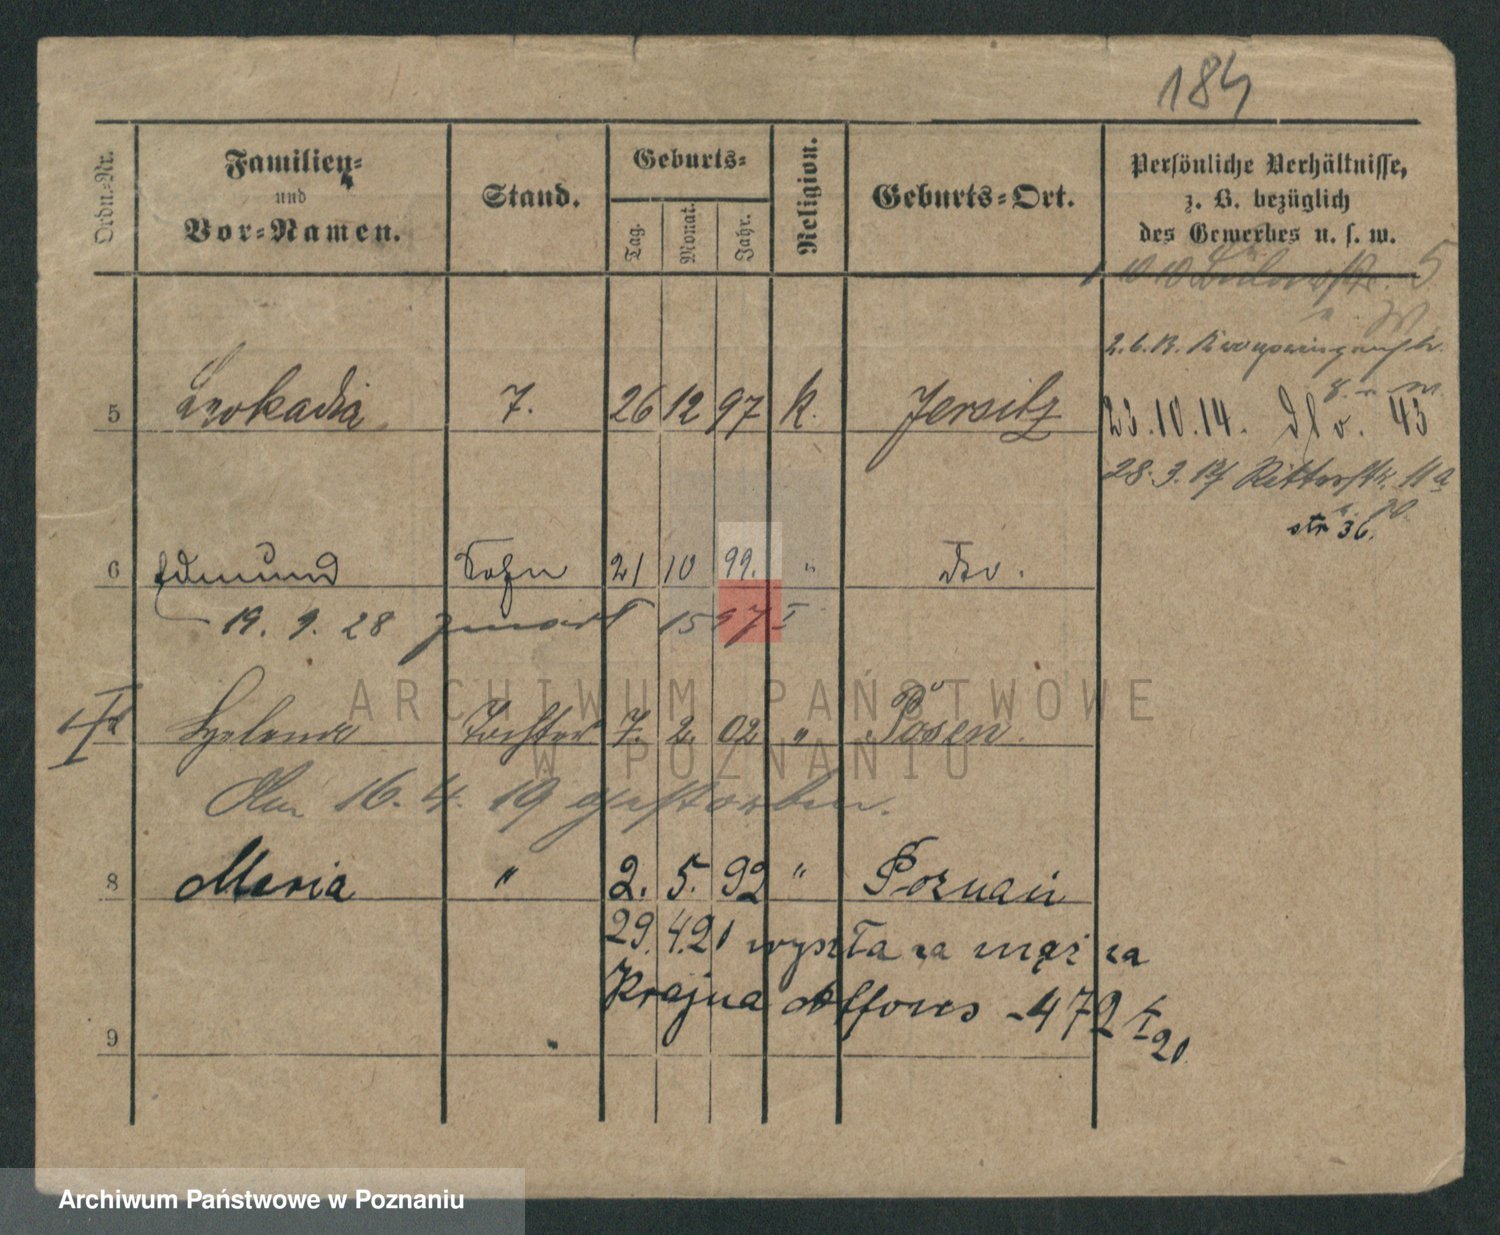 184
Ordn.-Nr.
Familien-
und
Vor-Namen.
Stand.
Geburts-
Tag.
Monat.
Jahr.
Religion.
Geburts-Ort.
Persönliche Verhältnisse,
z. B. bezüglich
des Gewerbes u. s. w.
5
2.6.13.
5 Leokadia T. 26 12 97 k. Jersitz
23.10.14. 43
28.3.17 Ritterstr. 11a
str 36.
6 Edmund Sohn 21 10 99. " Do.
19. 9. 28 zmarł
Helene Tochter 7. 2. 02 " Posen
Am 16. 4. 19 gestorben.
8 Maria " 2. 5. 92 " Poznań
29.4.21 wyszła za mąż za
Krajna Alfons - 472
9
ARCHIWUM PAŃSTWOWE
W POZNANIU
Archiwum Państwowe w Poznaniu